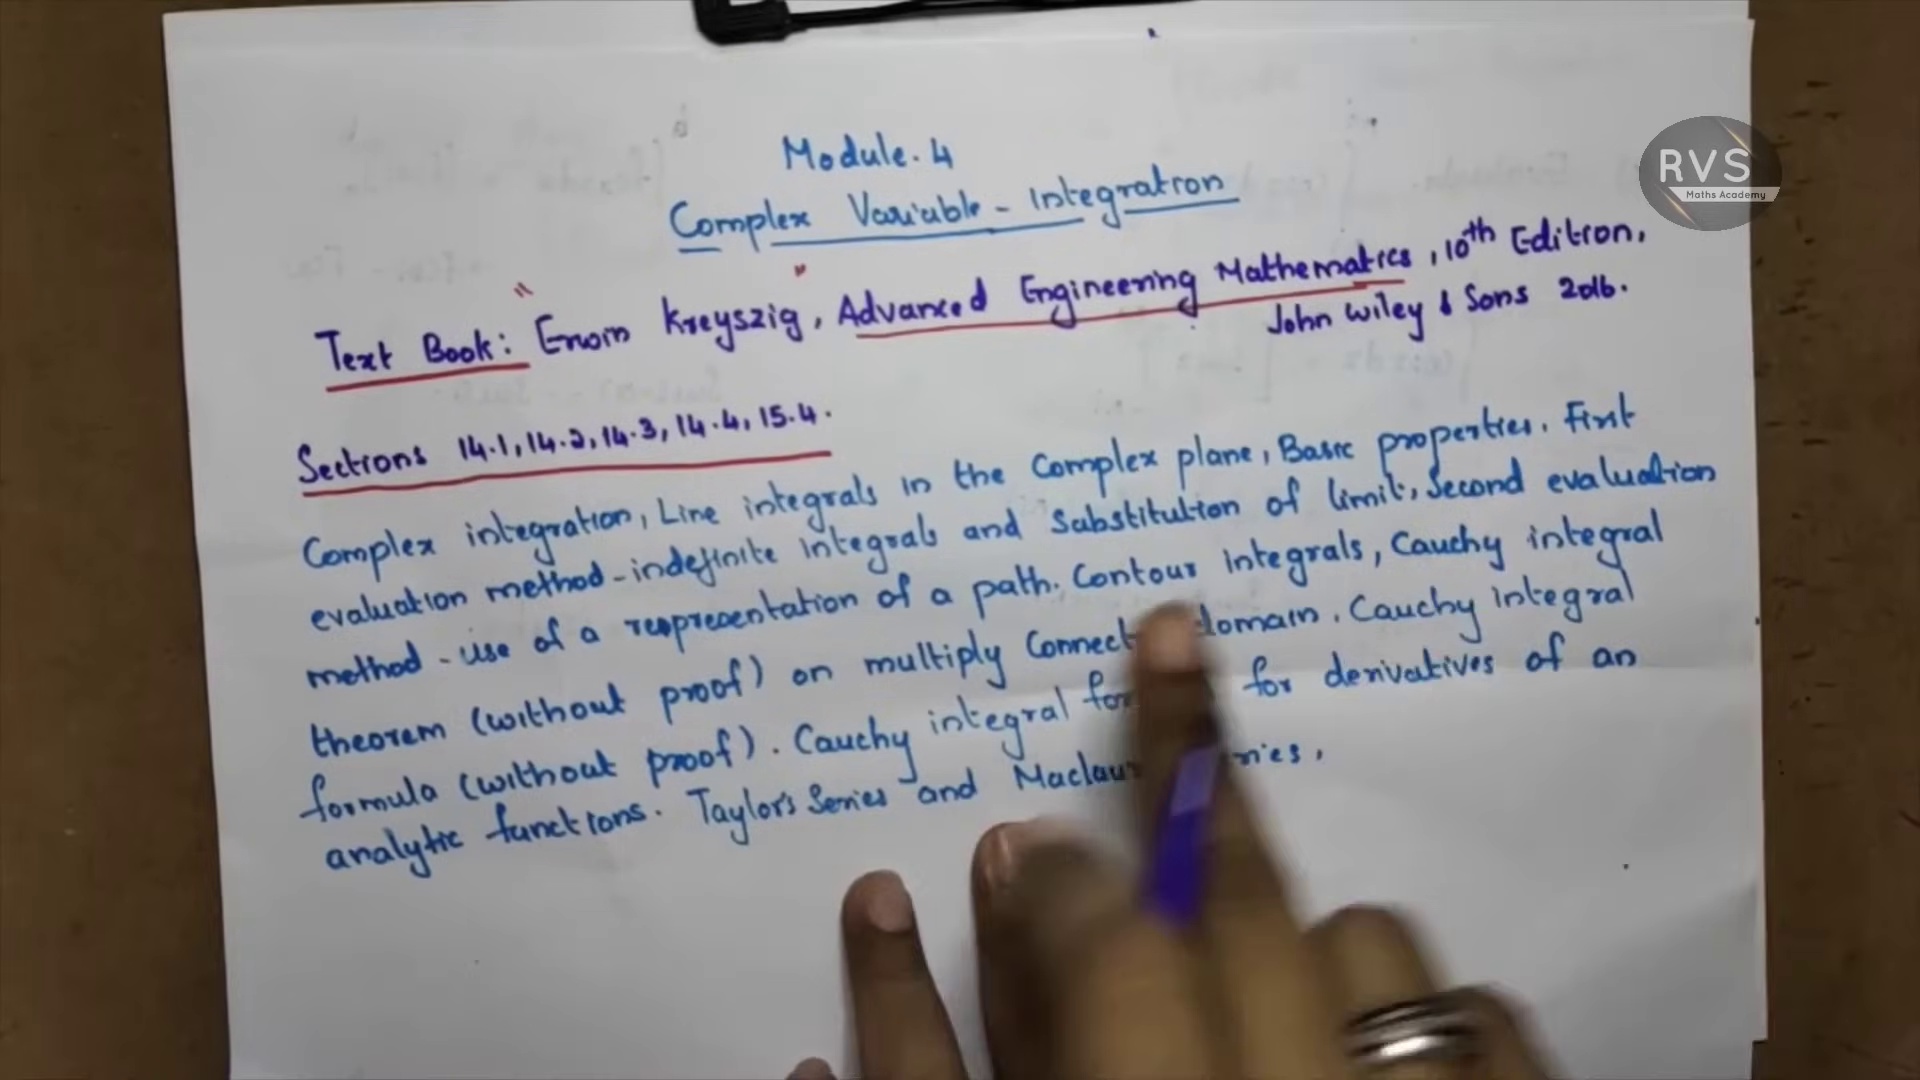 Module. 4
Complex Variable - Integration
Text Book: Erwin Kreyszig, Advanced Engineering Mathematics, 10th Edition,
John Wiley & Sons 2016.
Sections 14.1, 14.2, 14.3, 14.4, 15.4.
Complex integration, Line integrals in the Complex plane, Basic properties. First
evaluation method - indefinite integrals and substitution of limit, Second evaluation
method - use of a representation of a path. Contour integrals, Cauchy integral
theorem (without proof) on multiply Connect domain. Cauchy integral
formula (without proof). Cauchy integral for for derivatives of an
analytic functions. Taylor's Series and Maclaur ries.
RVS
Maths Academy